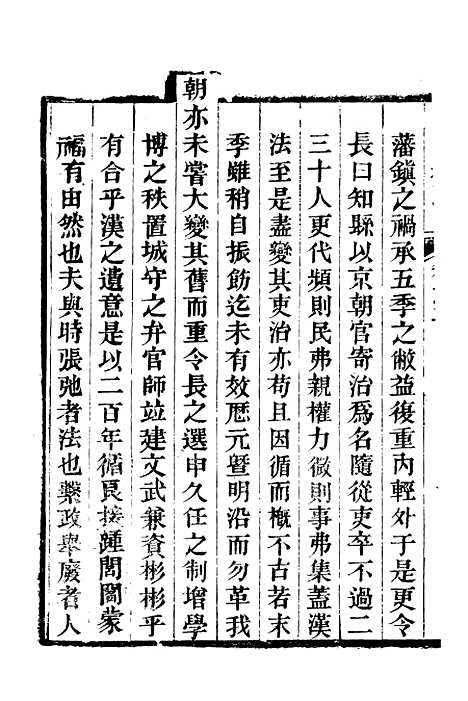 藩鎭之禍承五季之敝益復重內輕外于是更令
長曰知縣以京朝官寄治爲名隨從吏卒不過二
三十人更代頻則民弗親權力微則事弗集蓋漢
法至是盡變其吏治亦苟且因循而槪不古若末
季雖稍自振飭迄未有效厯元曁明沿而勿革我
朝亦未嘗大變其舊而重令長之選申久任之制增學
博之秩置城守之弁官師竝建文武兼資彬彬乎
有合乎漢之遺意是以二百年循良接踵閭閻蒙
福有由然也夫與時張弛者法也藥政舉廢者人